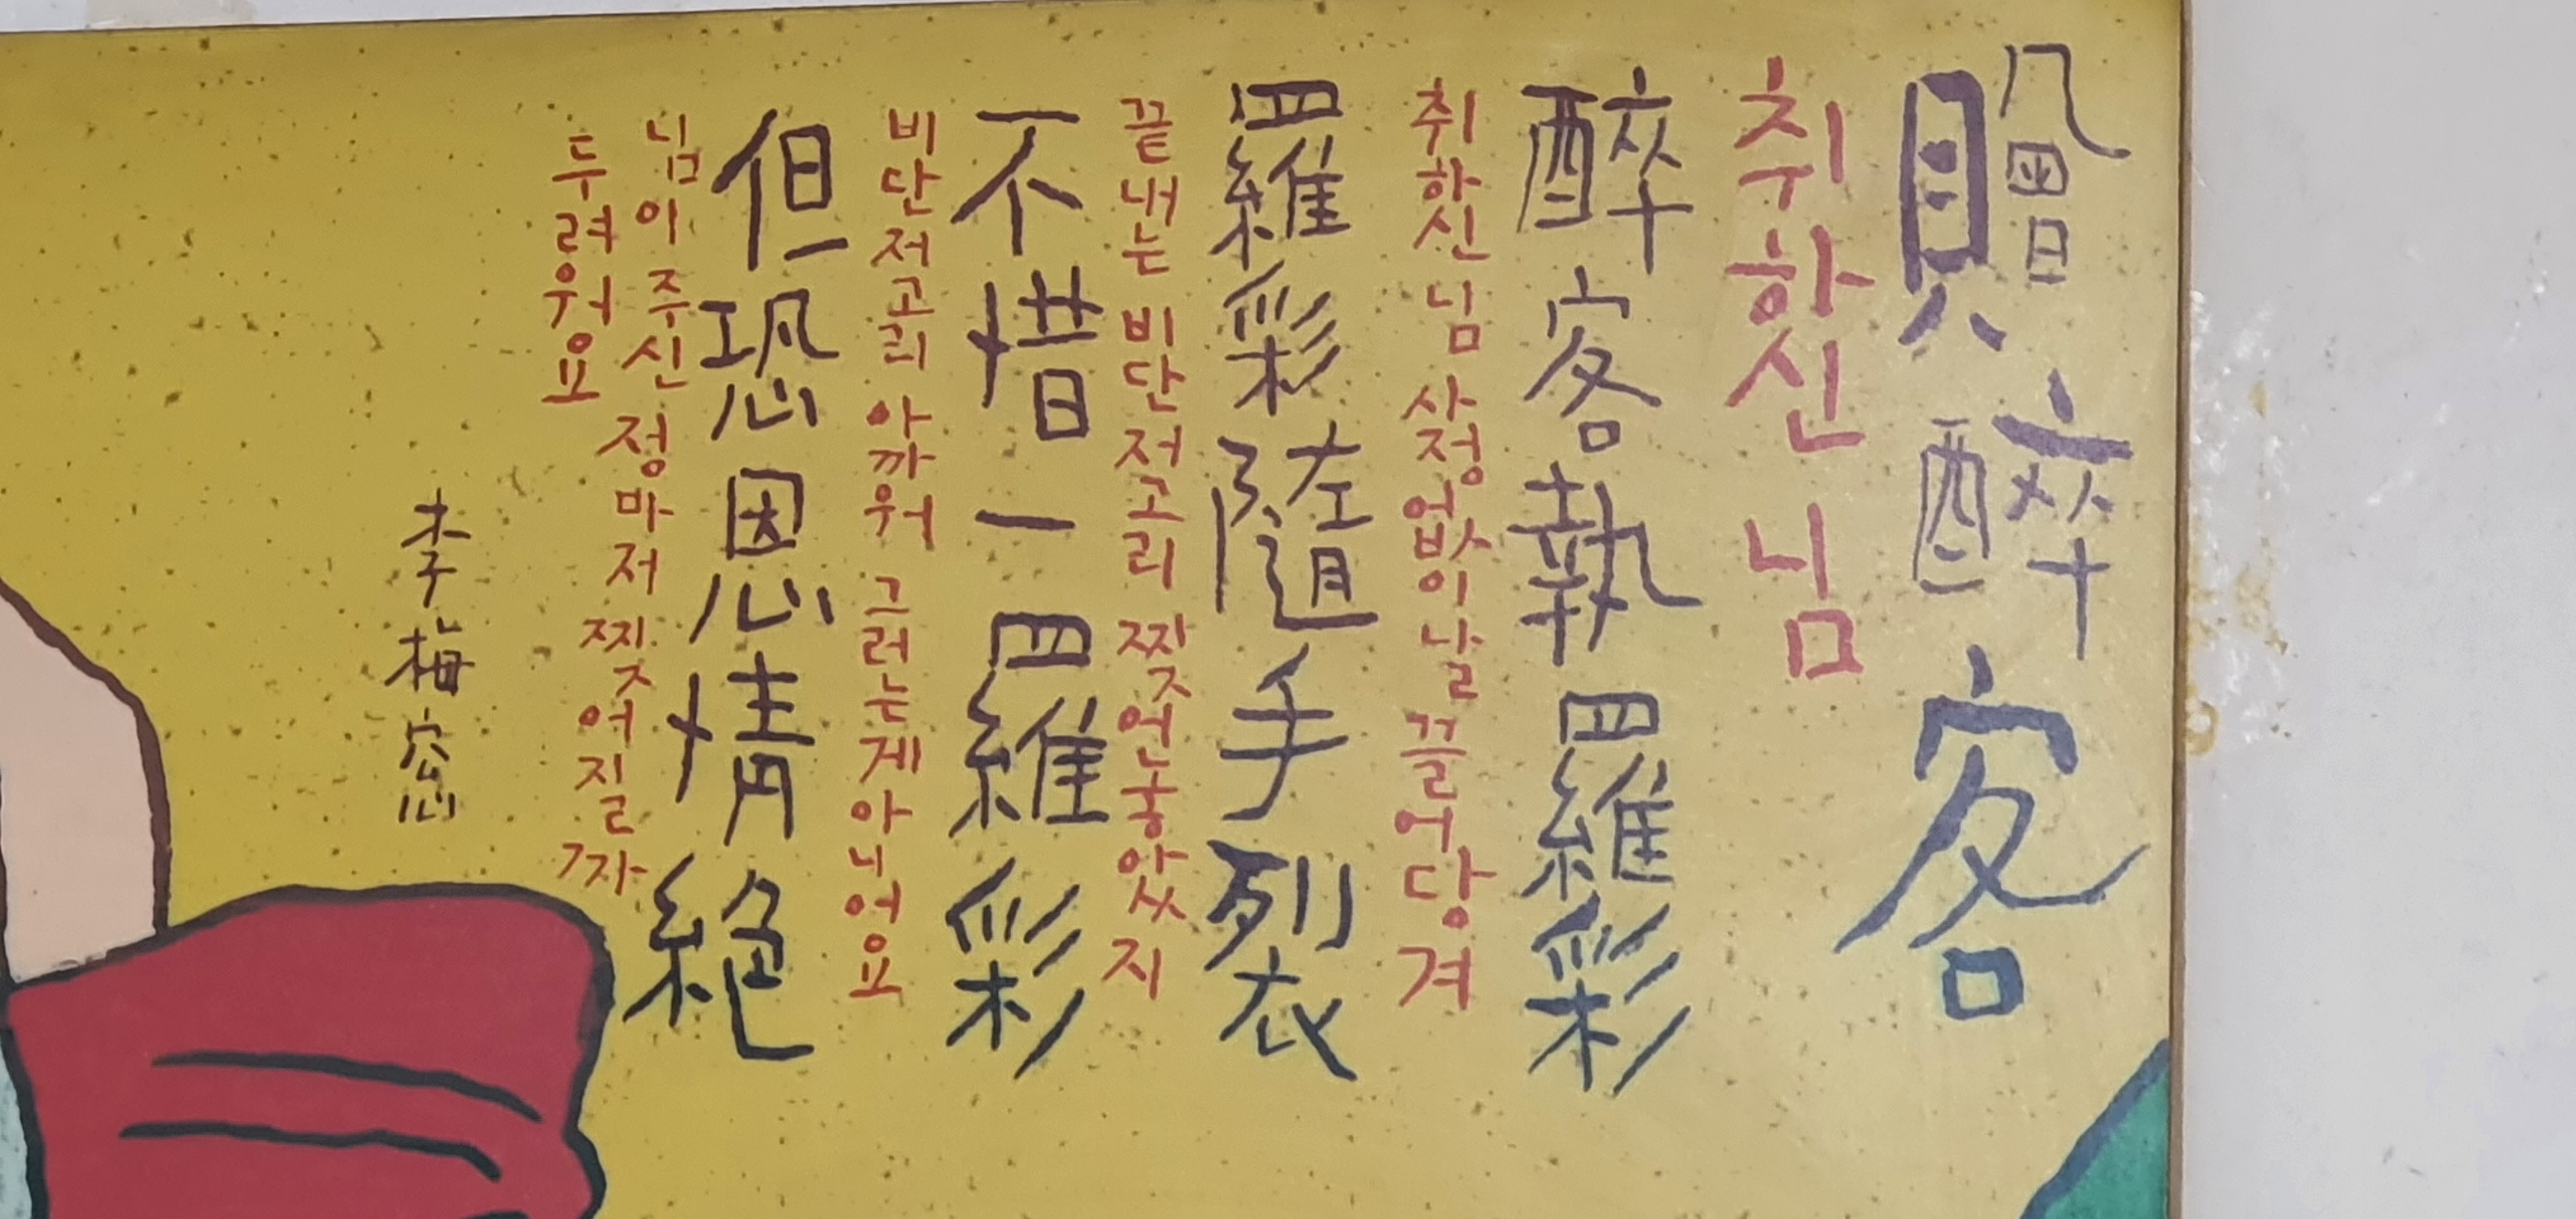 贈醉客
취하신 님
醉客執羅彩
취하신 님 사정없이 날 끌어당겨
羅彩隨手裂
끝내는 비단저고리 찢어놓았지
不惜一羅彩
비단저고리 아까워 그러는게 아니어요
但恐恩情絶
님이 주신 정마저 찢어질까
두려워요
李梅窓